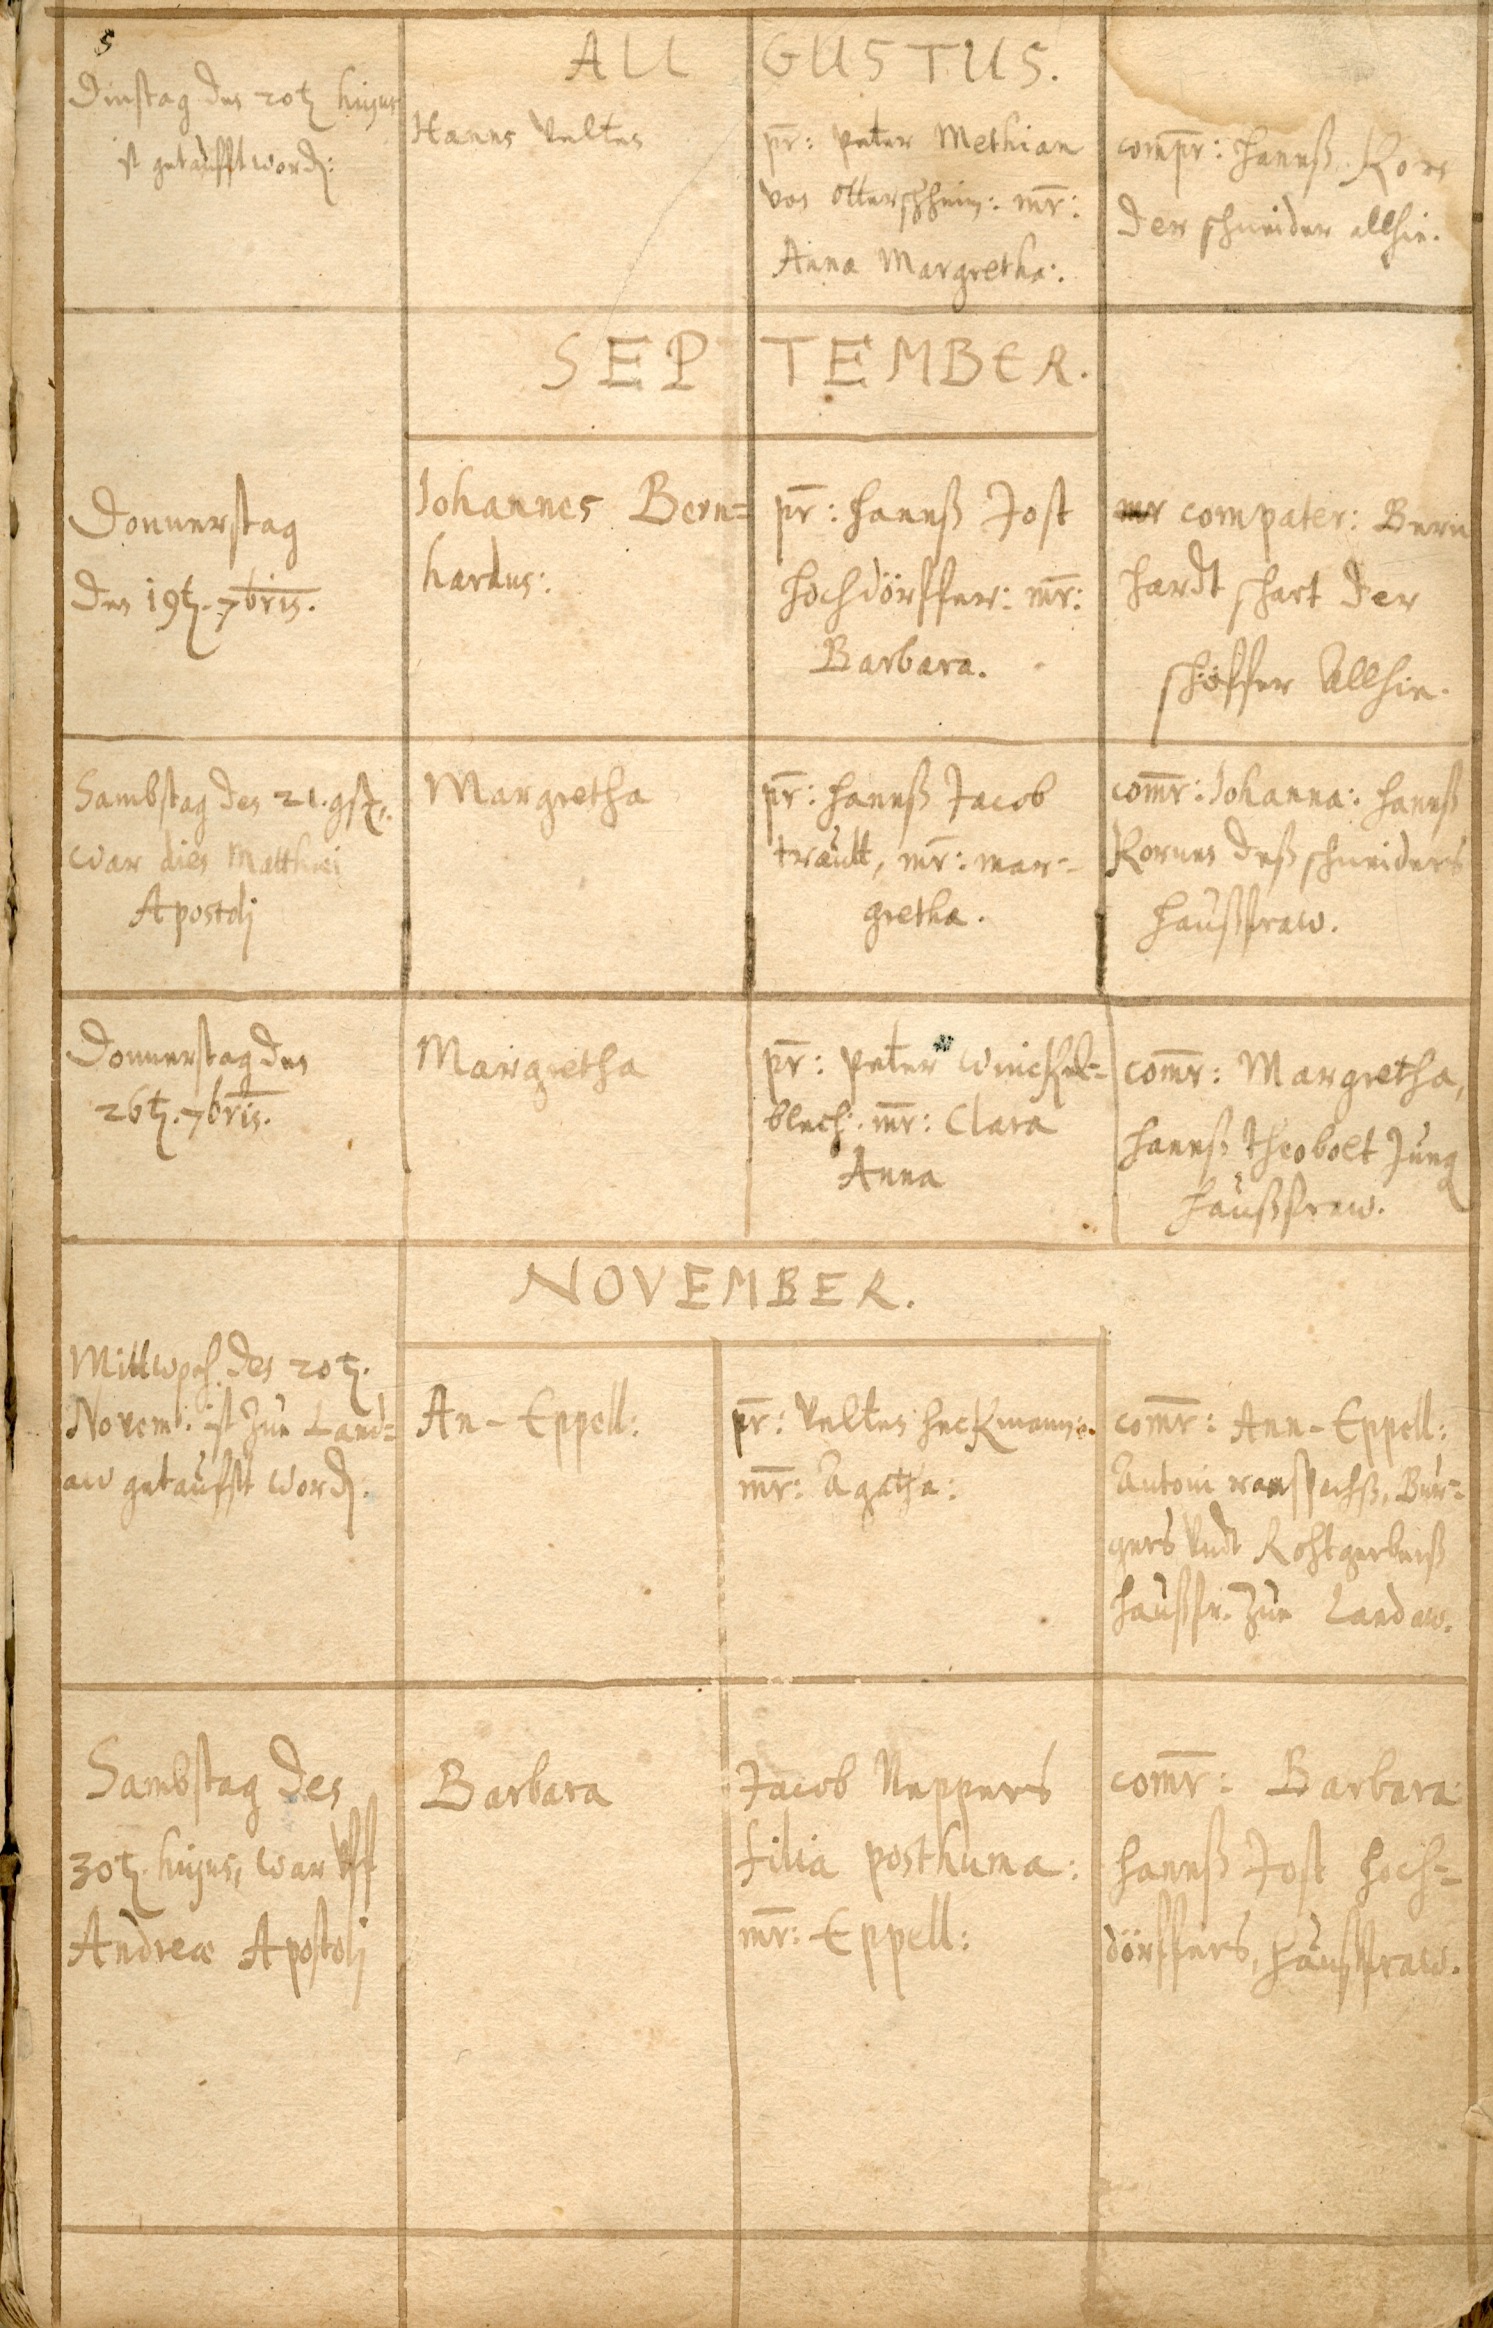 5
AUGUSTUS.
Dinstag den 20tȝ hujus
ist getaufft word:
Hanns Velten
pr̄: peter Methian
von Otterßheim: mr̄:
Anna Margretha:
compr̄: Hannß Korn
der schneider allhie.
SEPTEMBER.
Donnerstag
den 19tȝ. 7bris.
Iohannes Bern=
hardus:
pr̄: Hannß Jost
Hochdörffer: mr̄:
Barbara.
compater: Bern
hardt schart der
schöffer Allhie.
Sambstag den 21.
war dies Matthæi
Apostolj
Margretha
pr̄: Hannß Jacob
trault, mr̄: mar-
gretha.
com̄r: Iohanna: Hannß
Kornes deß schneiders
Haußfraw.
Donnerstag den
26tȝ. 7bris.
Margretha
pr̄: peter Winckel=
blech: mr̄: Clara
Anna
com̄r: Margretha,
Hannß theobolt Jung
Haußfraw.
NOVEMBER.
Mittwoch den 20tȝ.
Novemb: ist zue Land=
aw getaufft word.
An-Eppell:
pr̄: Velten Heckmann:
mr̄: Agatha:
com̄r: Ann-Eppell:
Antoni Bur=
gers Vndt Rohtgerberß
Haußfr. zue Landaw.
Sambstag den
30tȝ. hujus, war Vff
Andreæ Apostolj
Barbara
Jacob Neppers
filia posthuma:
mr̄: Eppell:
com̄r: Barbara
Hannß Jost Hoch=
dörffers, Haußfraw.